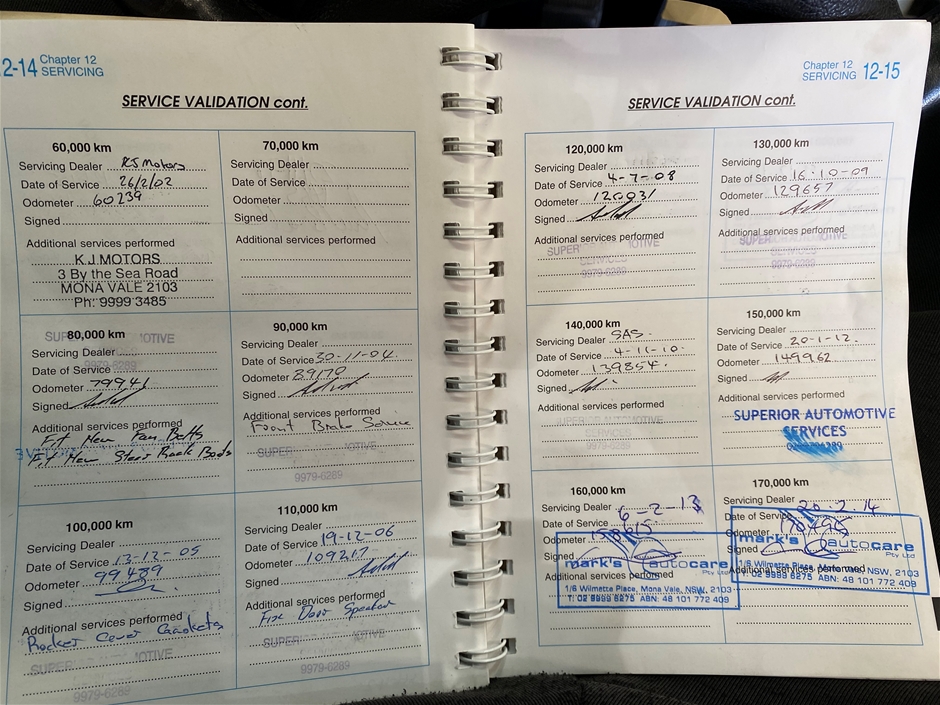 2-14 Chapter 12
SERVICING
SERVICE VALIDATION cont.
60,000 km
Servicing Dealer KJ Motors
Date of Service 26/2/02
Odometer 60239
Signed
Additional services performed
K.J MOTORS
3 By the Sea Road
MONA VALE 2103
Ph: 9999 3485
70,000 km
Servicing Dealer
Date of Service
Odometer
Signed
Additional services performed
80,000 km
Servicing Dealer
Date of Service
Odometer 79941
Signed
Additional services performed
Fit New Fan Belts
Fit New Steer Rack Boots
90,000 km
Servicing Dealer
Date of Service 30-11-04
Odometer 89170
Signed
Additional services performed
Front Brake Service
9979-6289
100,000 km
Servicing Dealer
Date of Service 13-12-05
Odometer 99489
Signed
Additional services performed
Rocker Cover Gaskets
SUPERIOR AUTOMOTIVE
9979-6289
110,000 km
Servicing Dealer
Date of Service 19-12-06
Odometer 109217
Signed
Additional services performed
Fix Door Speaker
9979-6289
Chapter 12
SERVICING 12-15
SERVICE VALIDATION cont.
120,000 km
Servicing Dealer
Date of Service 4-7-08
Odometer 120031
Signed
Additional services performed
SUPERIOR AUTOMOTIVE
SERVICES
9979-6289
130,000 km
Servicing Dealer
Date of Service 16-10-09
Odometer 129657
Signed
Additional services performed
SUPERIOR AUTOMOTIVE
SERVICES
9979-6289
140,000 km
Servicing Dealer SAS.
Date of Service 4-11-10
Odometer 139854
Signed
Additional services performed
SUPERIOR AUTOMOTIVE
SERVICES
150,000 km
Servicing Dealer
Date of Service 20-1-12.
Odometer 149962
Signed
Additional services performed
SUPERIOR AUTOMOTIVE
SERVICES
160,000 km
Servicing Dealer
Date of Service 6-2-13
Odometer
Signed
Additional services performed
mark's autocare
Pty Ltd
1/6 Wilmette Place, Mona Vale, NSW, 2103
T: 02 9999 6275 ABN: 48 101 772 409
170,000 km
Servicing Dealer
Date of Service 20.2.14
Odometer
Signed
Additional services performed
mark's autocare
Pty Ltd
1/6 Wilmette Place, Mona Vale, NSW, 2103
T: 02 9999 6275 ABN: 48 101 772 409